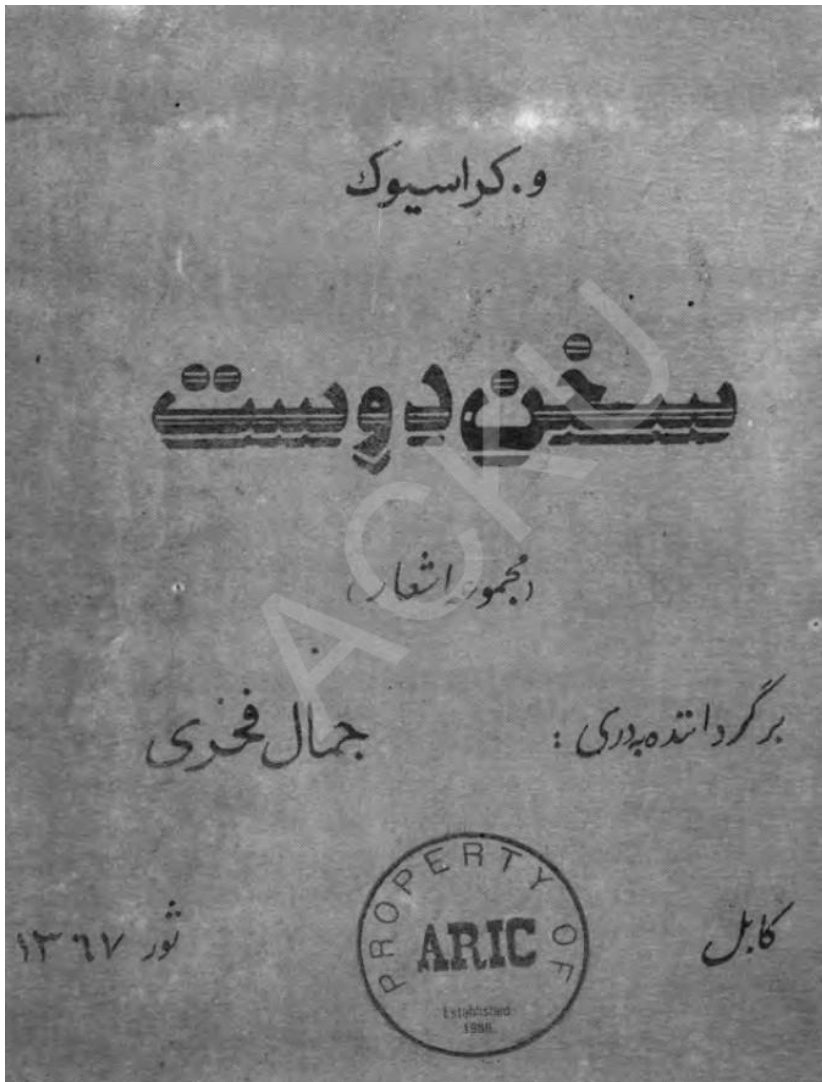 و. کراسیوک
سخن دوست
(مجموعه اشعار)
برگردانندهٔ بدری : جمال فخری
کابل ثور ۱۳۶۷
PROPERTY OF
ARIC
Established
1988
ACKU